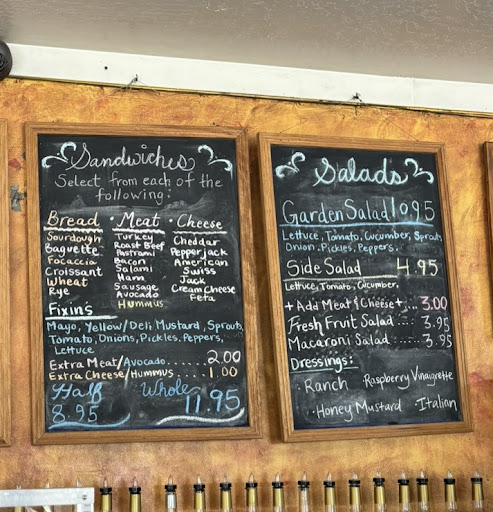 Sandwiches
Select from each of the
following:
Bread · Meat · Cheese
Sourdough
Baguette
Focaccia
Croissant
Wheat
Rye
Turkey
Roast Beef
Pastrami
Bacon
Salami
Ham
Sausage
Avocado
Hummus
Cheddar
Pepperjack
American
Swiss
Jack
Cream Cheese
Feta
Fixin's
Mayo, Yellow/Deli Mustard, Sprouts,
Tomato, Onions, Pickles, Peppers,
Lettuce
Extra Meat/Avocado........2.00
Extra Cheese/Hummus.....1.00
Half Whole
8.95 11.95
Salads
Garden Salad 10.95
Lettuce, Tomato, Cucumber, Sprouts
Onion, Pickles, Peppers,
Side Salad 4.95
Lettuce, Tomato, Cucumber,
+ Add Meat & Cheese +... 3.00
Fresh Fruit Salad .... 3.95
Macaroni Salad .... 3.95
Dressings:
· Ranch · Raspberry Vinaigrette
· Honey Mustard · Italian